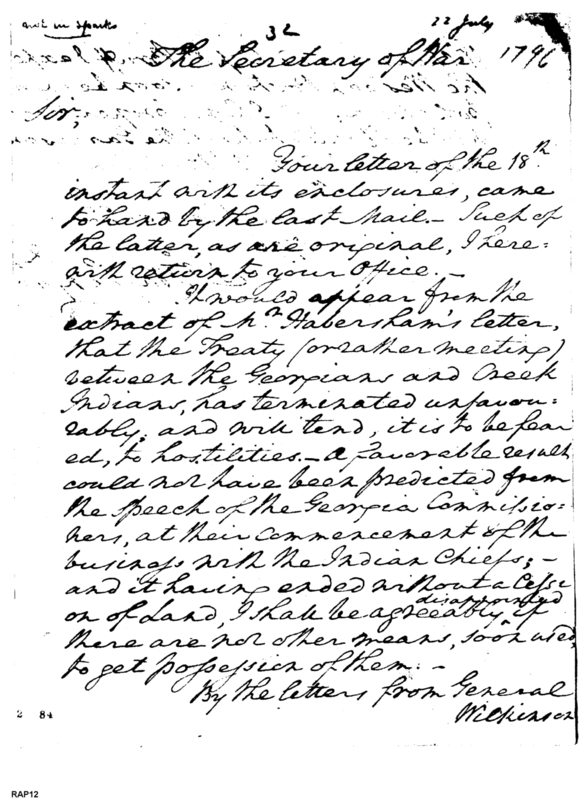 not in Sparks
32
22 July
The Secretary of War 1796
Sir,
Your letter of the 18th
instant with its enclosures, came
to hand by the last Mail.– Such of
the latter, as are original, I here=
with return to your Office.–
It would appear from the
extract of Mr. Habersham's letter,
that the Treaty (or rather meeting)
between the Georgians and Creek
Indians, has terminated unfavou=
rably, and will tend, it is to be fear
ed, to hostilities.– A favorable result
could not have been predicted from
the speech of the Georgia Commissio=
ners, at their commencement of the
business with the Indian Chiefs;–
and it having ended without a Cessi
on of Land, I shall be agreeably disappointed if
there are not other means, soon used,
to get possession of them.–
By the letters from General
Wilkinson
2 84
RAP12